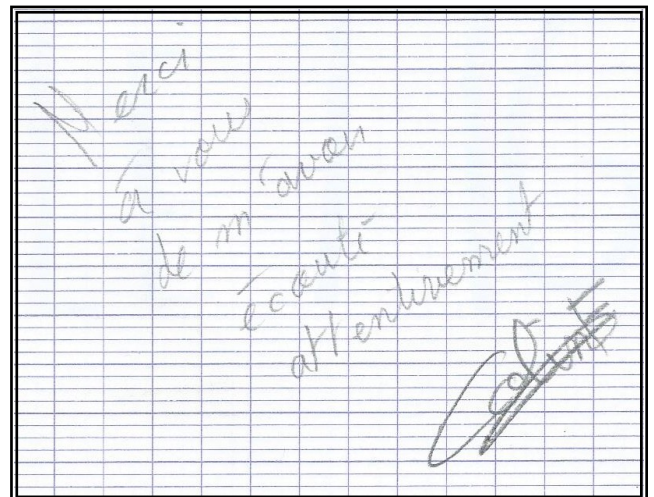 Merci
à vous
de m'avoir
écouté
attentivement